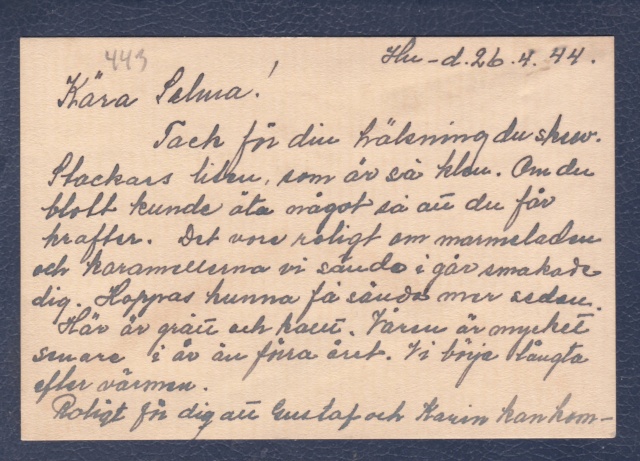 443
Hu-d. 26.4.44.
Kära Selma!
Tack för din hälsning du skrev.
Stackars liten, som är så klen. Om du
blott kunde äta något så att du får
krafter. Det vore roligt om marmeladen
och karamellerna vi sände i går smakade
dig. Hoppas kunna få sända mer sedan.
Här är grått och kallt. Våren är mycket
senare i år än förra året. Vi börja längta
efter värmen.
Roligt för dig att Gustaf och Karin kan kom-